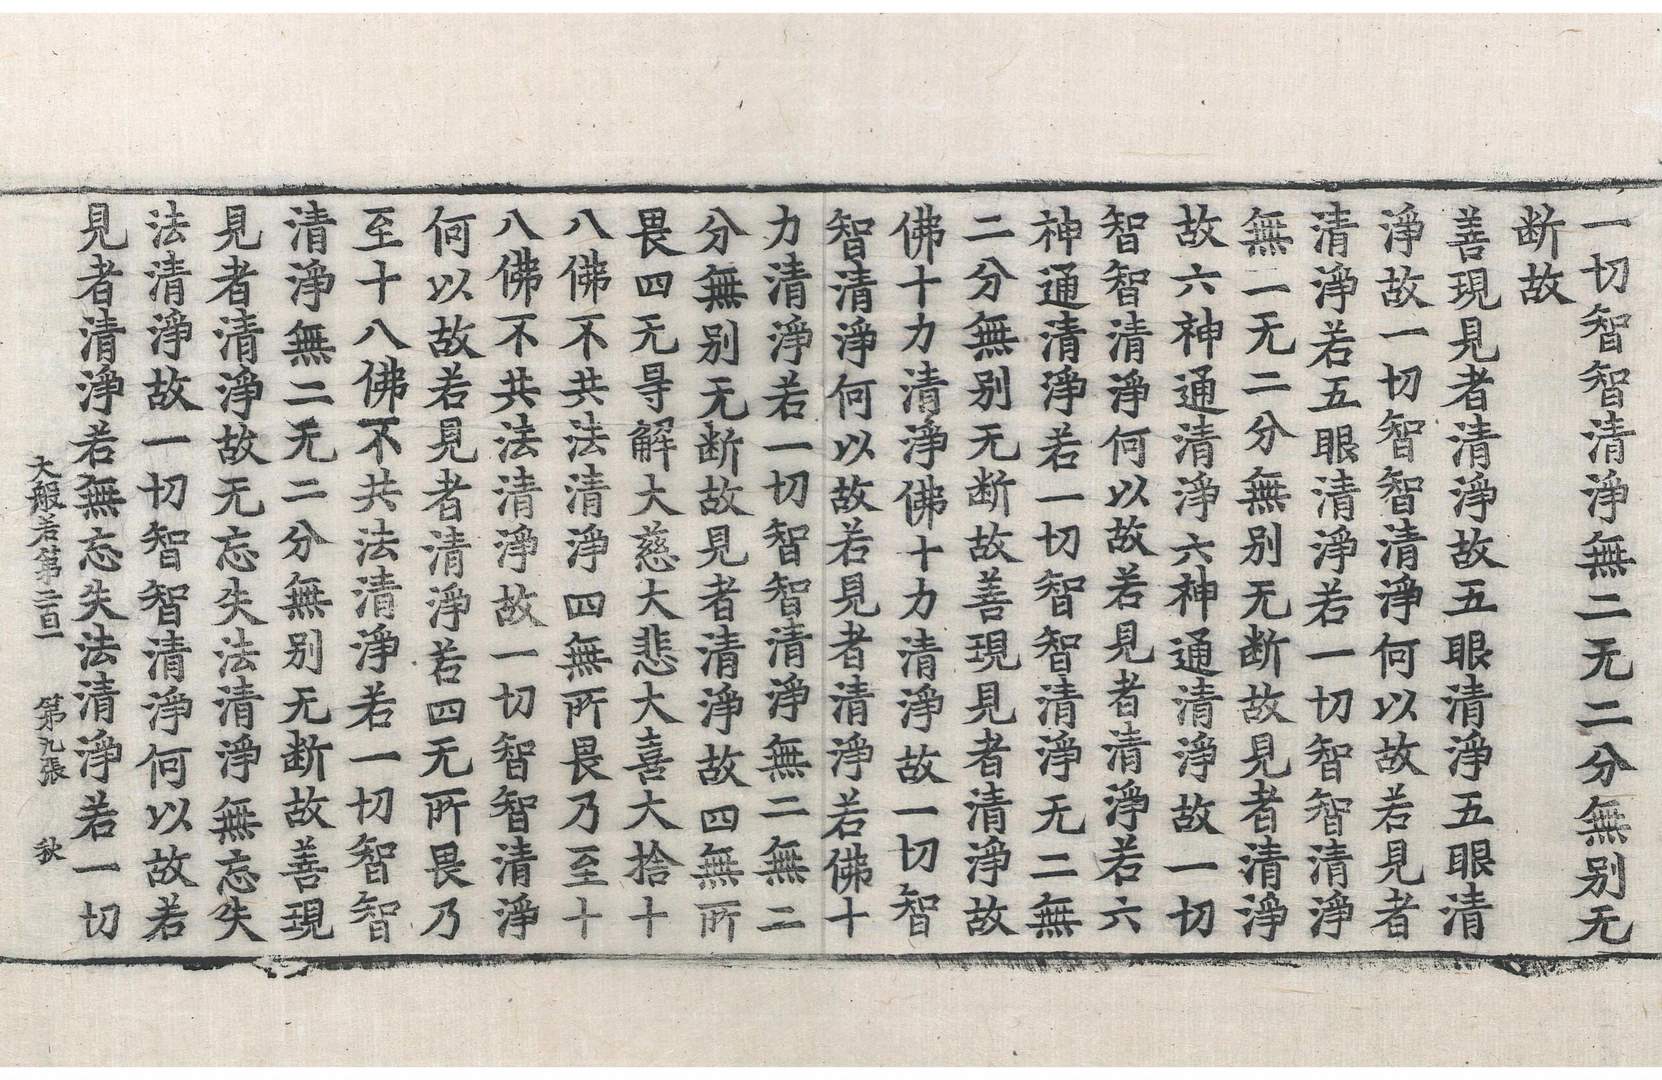 一切智智清淨無二无二分無别无
断故
善現見者清淨故五眼清淨五眼清
淨故一切智智清淨何以故若見者
清淨若五眼清淨若一切智智清淨
無二无二分無别无断故見者清淨
故六神通清淨六神通清淨故一切
智智清淨何以故若見者清淨若六
神通清淨若一切智智清淨无二無
二分無别无断故善現見者清淨故
佛十力清淨佛十力清淨故一切智
智清淨何以故若見者清淨若佛十
力清淨若一切智智清淨無二無二
分無别无断故見者清淨故四無所
畏四无㝵解大慈大悲大喜大捨十
八佛不共法清淨四無所畏乃至十
八佛不共法清淨故一切智智清淨
何以故若見者清淨若四无所畏乃
至十八佛不共法清淨若一切智智
清淨無二无二分無别无断故善現
見者清淨故无忘失法清淨無忘失
法清淨故一切智智清淨何以故若
見者清淨若無忘失法清淨若一切
大般若第二百一 第九張 秋